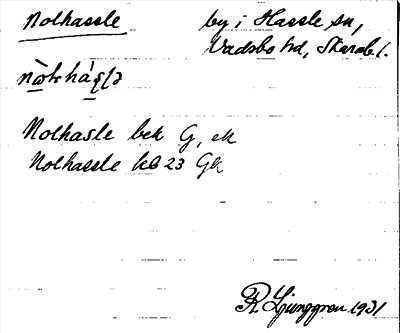 Nolhassle
by i Hassle sn,
Vadsbo hd, Skarab l.
Nolhasle bek G, ek
Nolhassle kb 23 Gk
R. Ljunggren 1931